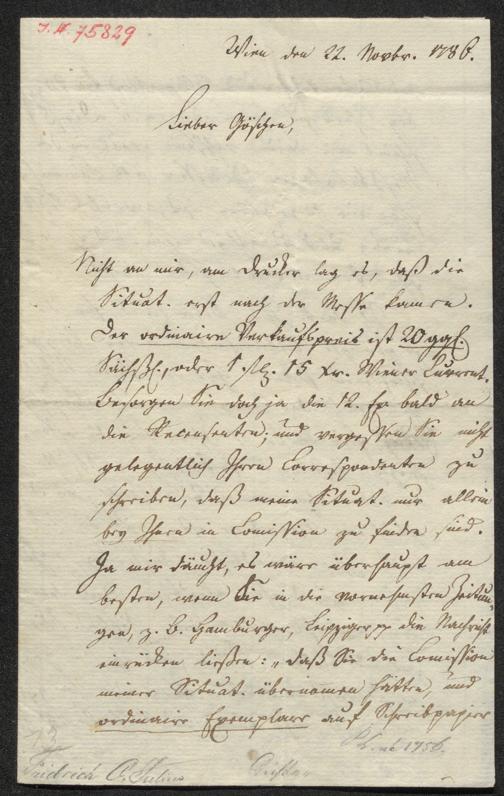 I. N. 75829
Wien den 22. Novbr. 1786.
Lieber Göschen,
Nicht an mir, am Drucker lag es, daß die
Situat. erst nach der Messe kamen.
Der ordinaire Verkaufspreis ist 20 ggl.
Sächsl., oder 1 fl. 15 Xr. Wiener Current.
Besorgen Sie doch ja die 12. Ex bald an
die Recensenten; und vergessen Sie nicht
gelegentlich Ihren Correspondenten zu
schreiben, daß meine Situat. nur allein
bey Ihnen in Comission zu finden sind.
Ja mir däucht, es wäre überhaupt am
besten, wenn Sie in die vornehmsten Zeitun-
gen, z. B. Hamburger, Leipziger pp die Nachricht
einrücken ließen: „daß Sie die Comission
meiner Situat. übernomen hätten, und
ordinaire Exemplare auf Schreibpapier
1756.
Fridrich
Dichter